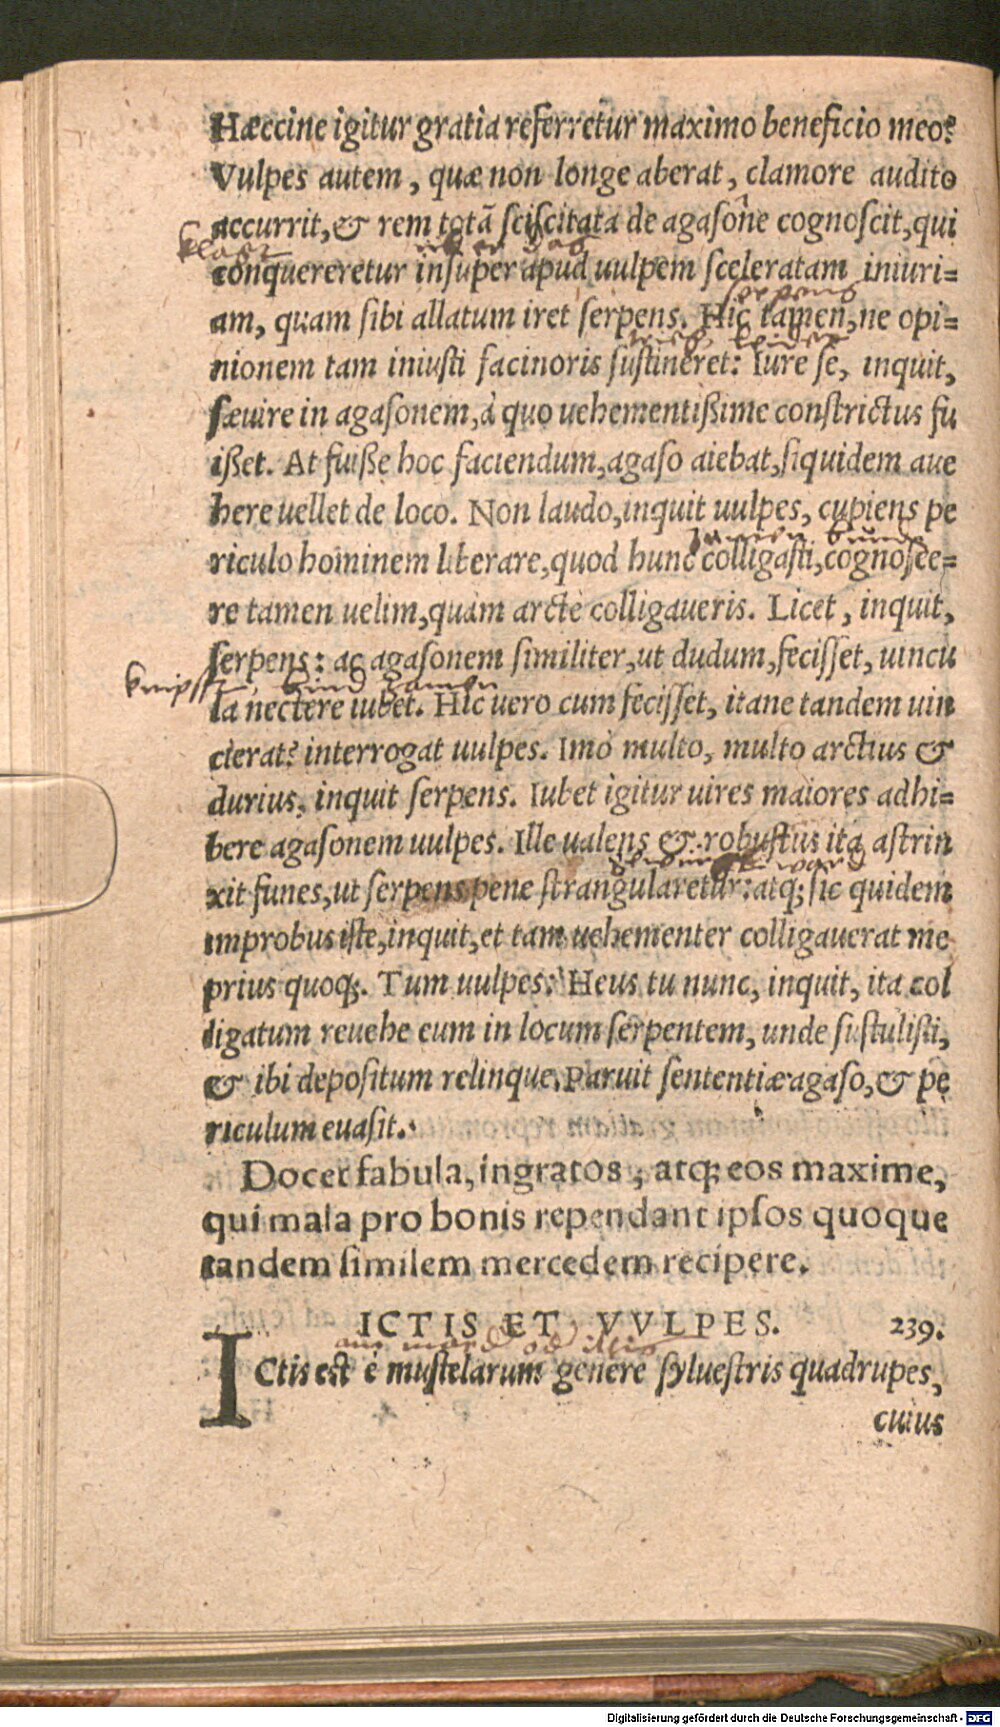 Hæccine igitur gratia referretur maximo beneficio meo?
Vulpes autem, quæ non longe aberat, clamore audito
accurrit, & rem totã sciscitata de agasone cognoscit, qui
klagt
conquereretur insuper apud uulpem sceleratam iniuri=
serpens
am, quam sibi allatum iret serpens. Hic tamen, ne opi=
nionem tam iniusti facinoris sustineret: Iure se, inquit,
sæuire in agasonem, à quo uehementißime constrictus fu
ißet. At fuiße hoc faciendum, agaso aiebat, siquidem aue
here uellet de loco. Non laudo, inquit uulpes, cupiens pe
riculo hominem liberare, quod hunc colligasti, cognosce=
re tamen uelim, quàm arctè colligaueris. Licet, inquit,
serpens: ac agasonem similiter, ut dudum, fecisset, uincu
la nectere iubet. Hic uero cum fecisset, itane tandem uin
cierat? interrogat uulpes. Imò multo, multo arctius &
durius, inquit serpens. Iubet igitur uires maiores adhi=
bere agasonem uulpes. Ille ualens & robustus ita astrin
ward
xit funes, ut serpens pene strangularetur: atq; sic quidem
improbus iste, inquit, et tam uehementer colligauerat me
prius quoq;. Tum uulpes: Heus tu nunc, inquit, ita col
ligatum reuehe eum in locum serpentem, unde sustulisti,
& ibi depositum relinque. Paruit sententiæ agaso, & pe
riculum euasit.
Docet fabula, ingratos, atq; eos maxime,
qui mala pro bonis rependant ipsos quoque
tandem similem mercedem recipere.
ICTIS ET VVLPES. 239.
ICtis est è mustelarum genere syluestris quadrupes,
cuius
Digitalisierung gefördert durch die Deutsche Forschungsgemeinschaft - DFG